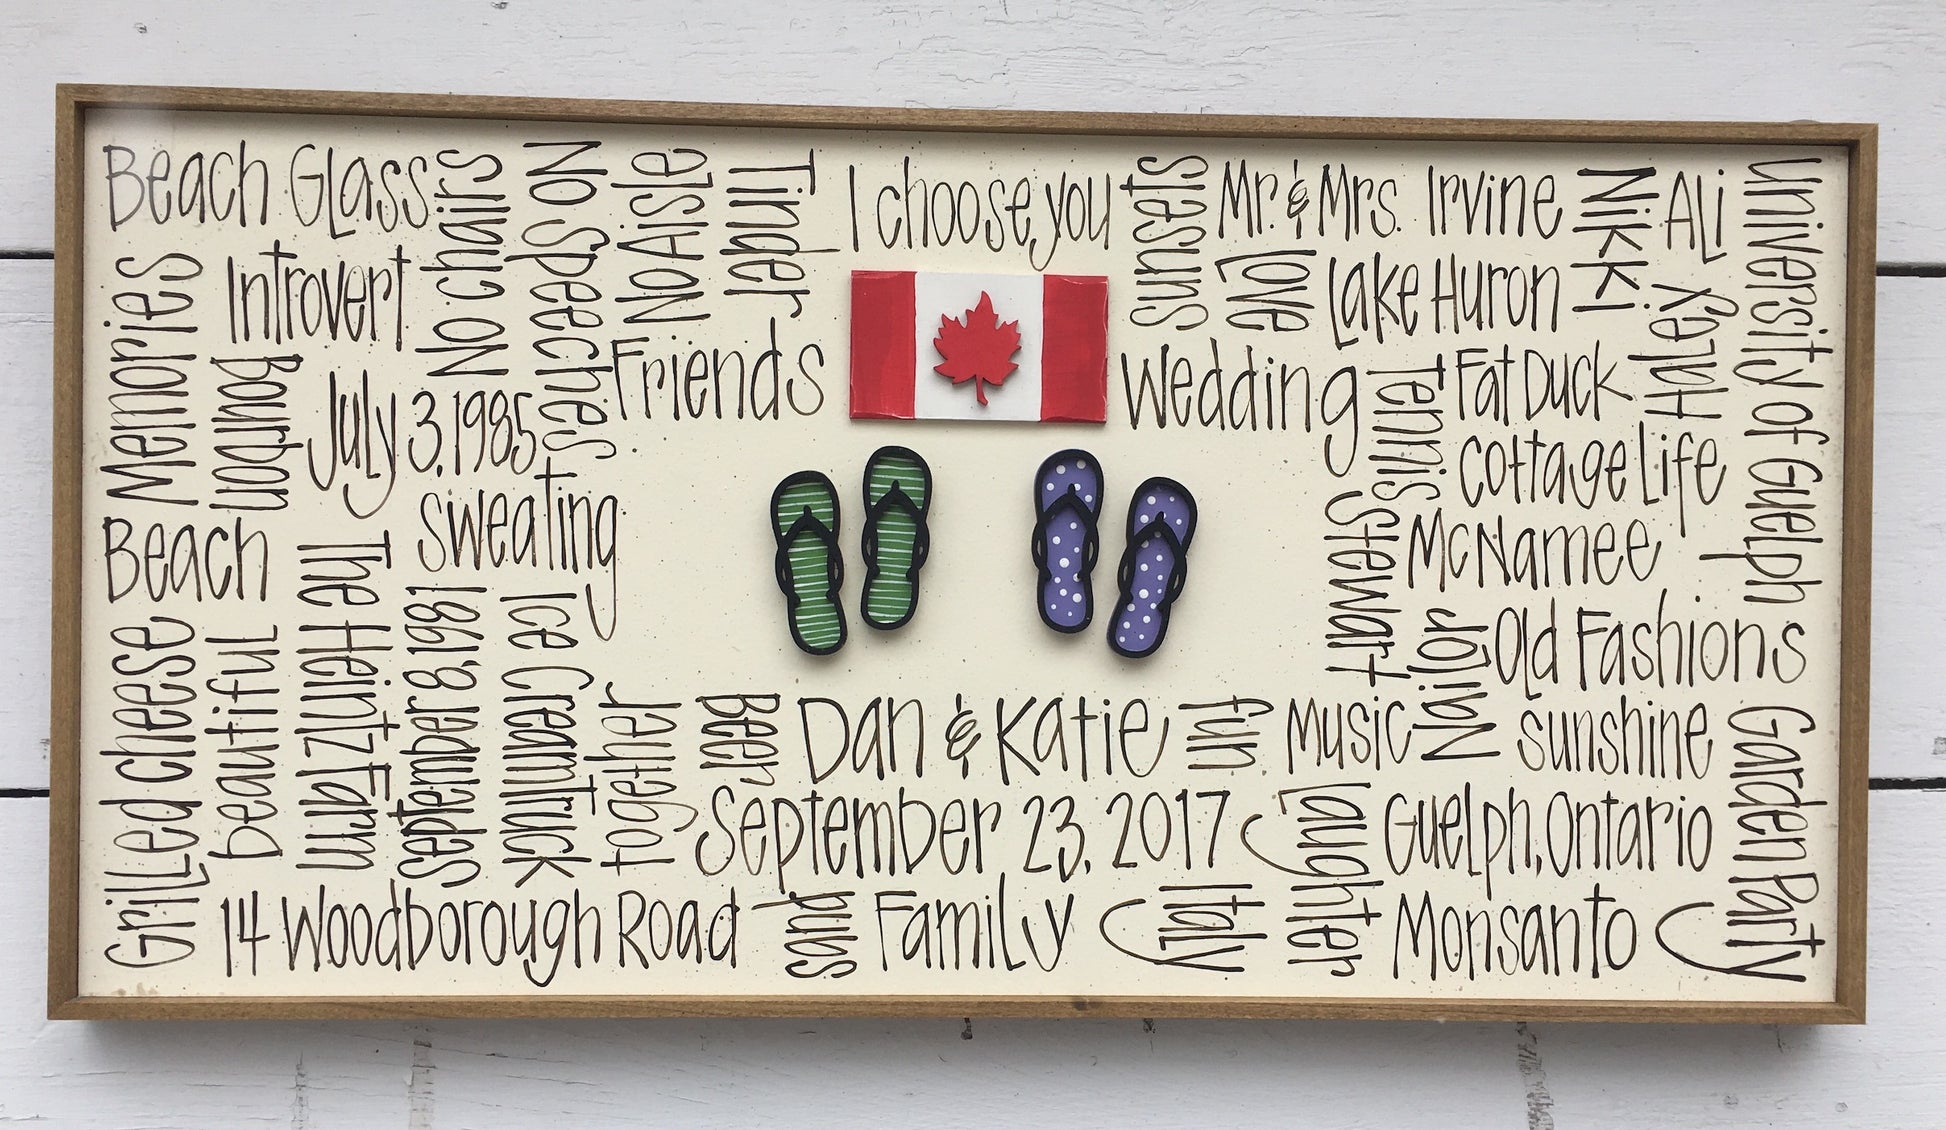 Beach Glass
No chairs
No Speeches
No Aisle
Tinder
I choose you
sunsets
Mr. & Mrs. Irvine
Nikki
Ali
University of Guelph
Memories
Introvert
love
Lake Huron
Haley
bourbon
July 3, 1985
Friends
Wedding
Tennis
Fat Duck
Cottage Life
Beach
The Heintz Farm
sweating
Stewart
McNamee
Grilled Cheese
beautiful
September 8, 1981
Ice Cream Truck
together
Beer
Dan & Katie
fun
Music
Major
Old Fashions
sunshine
Garden Party
September 23, 2017
laughter
Guelph, Ontario
14 Woodborough Road
pubs
Family
Italy
Monsanto